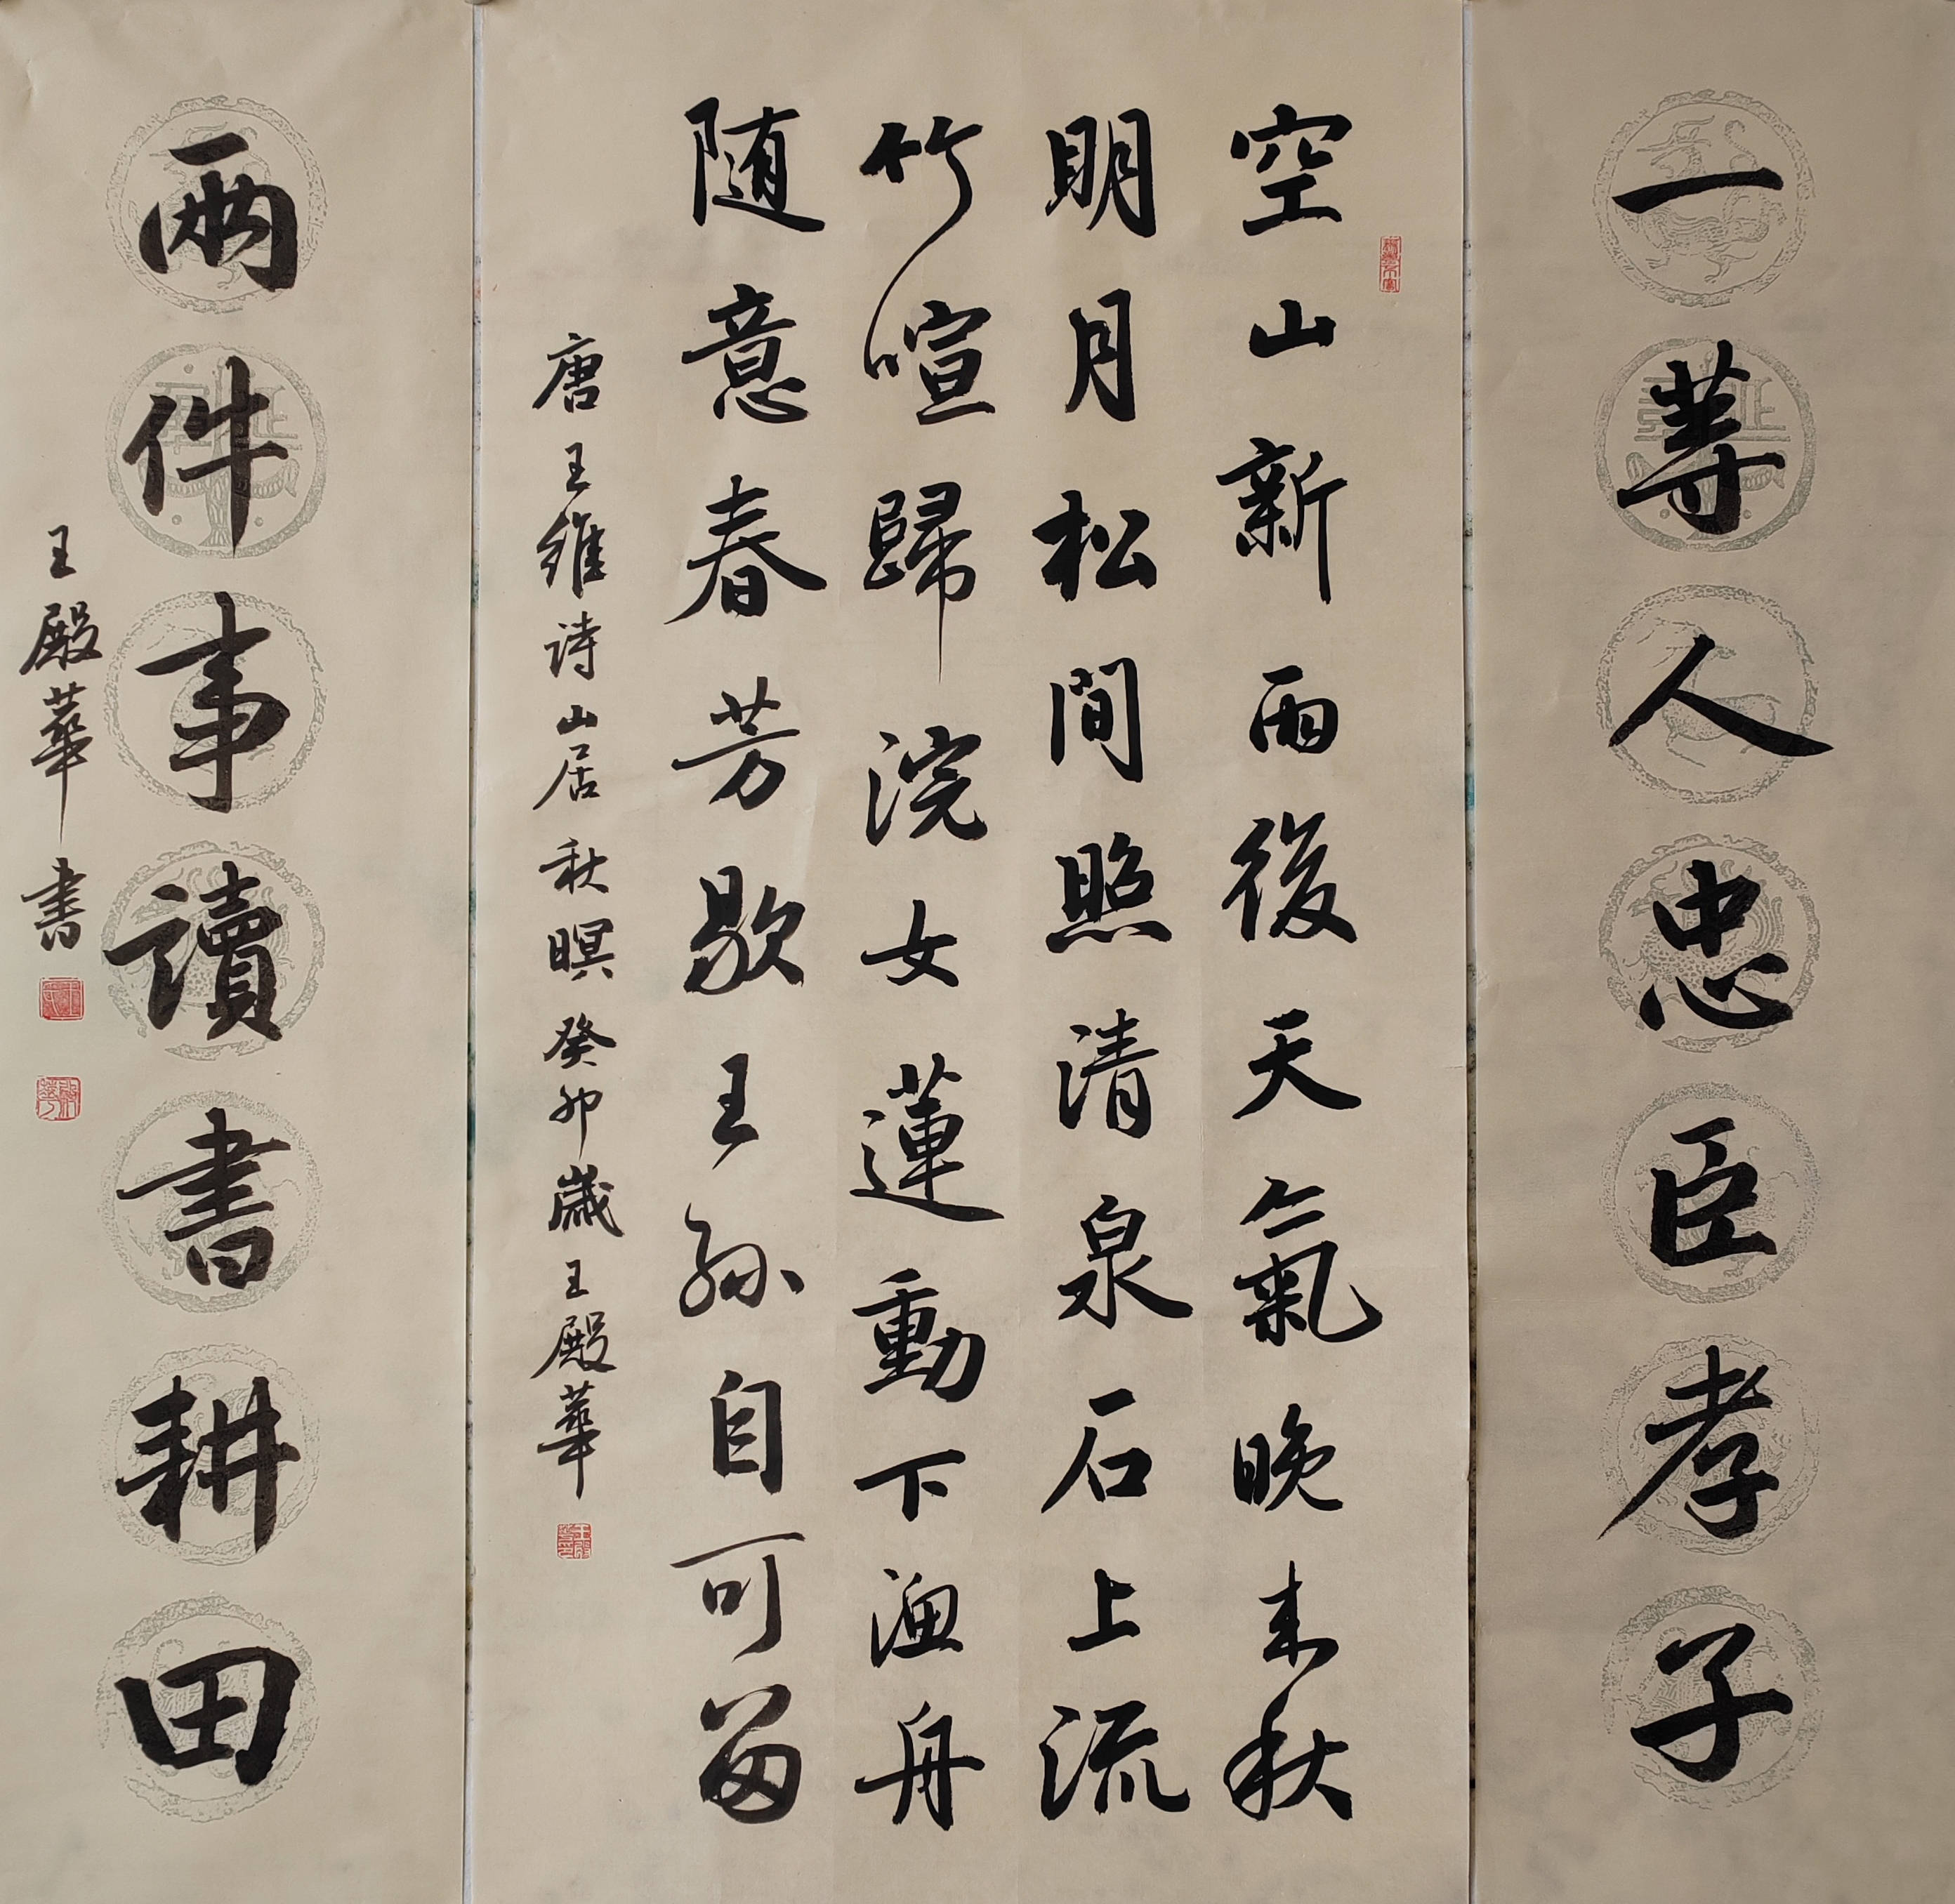 一等人忠臣孝子
空山新雨後天氣晚来秋
明月松間照清泉石上流
竹喧歸浣女蓮動下漁舟
随意春芳歇王孫自可留
唐王維诗山居秋暝癸卯歲王殿華
兩件事讀書耕田
王殿華書